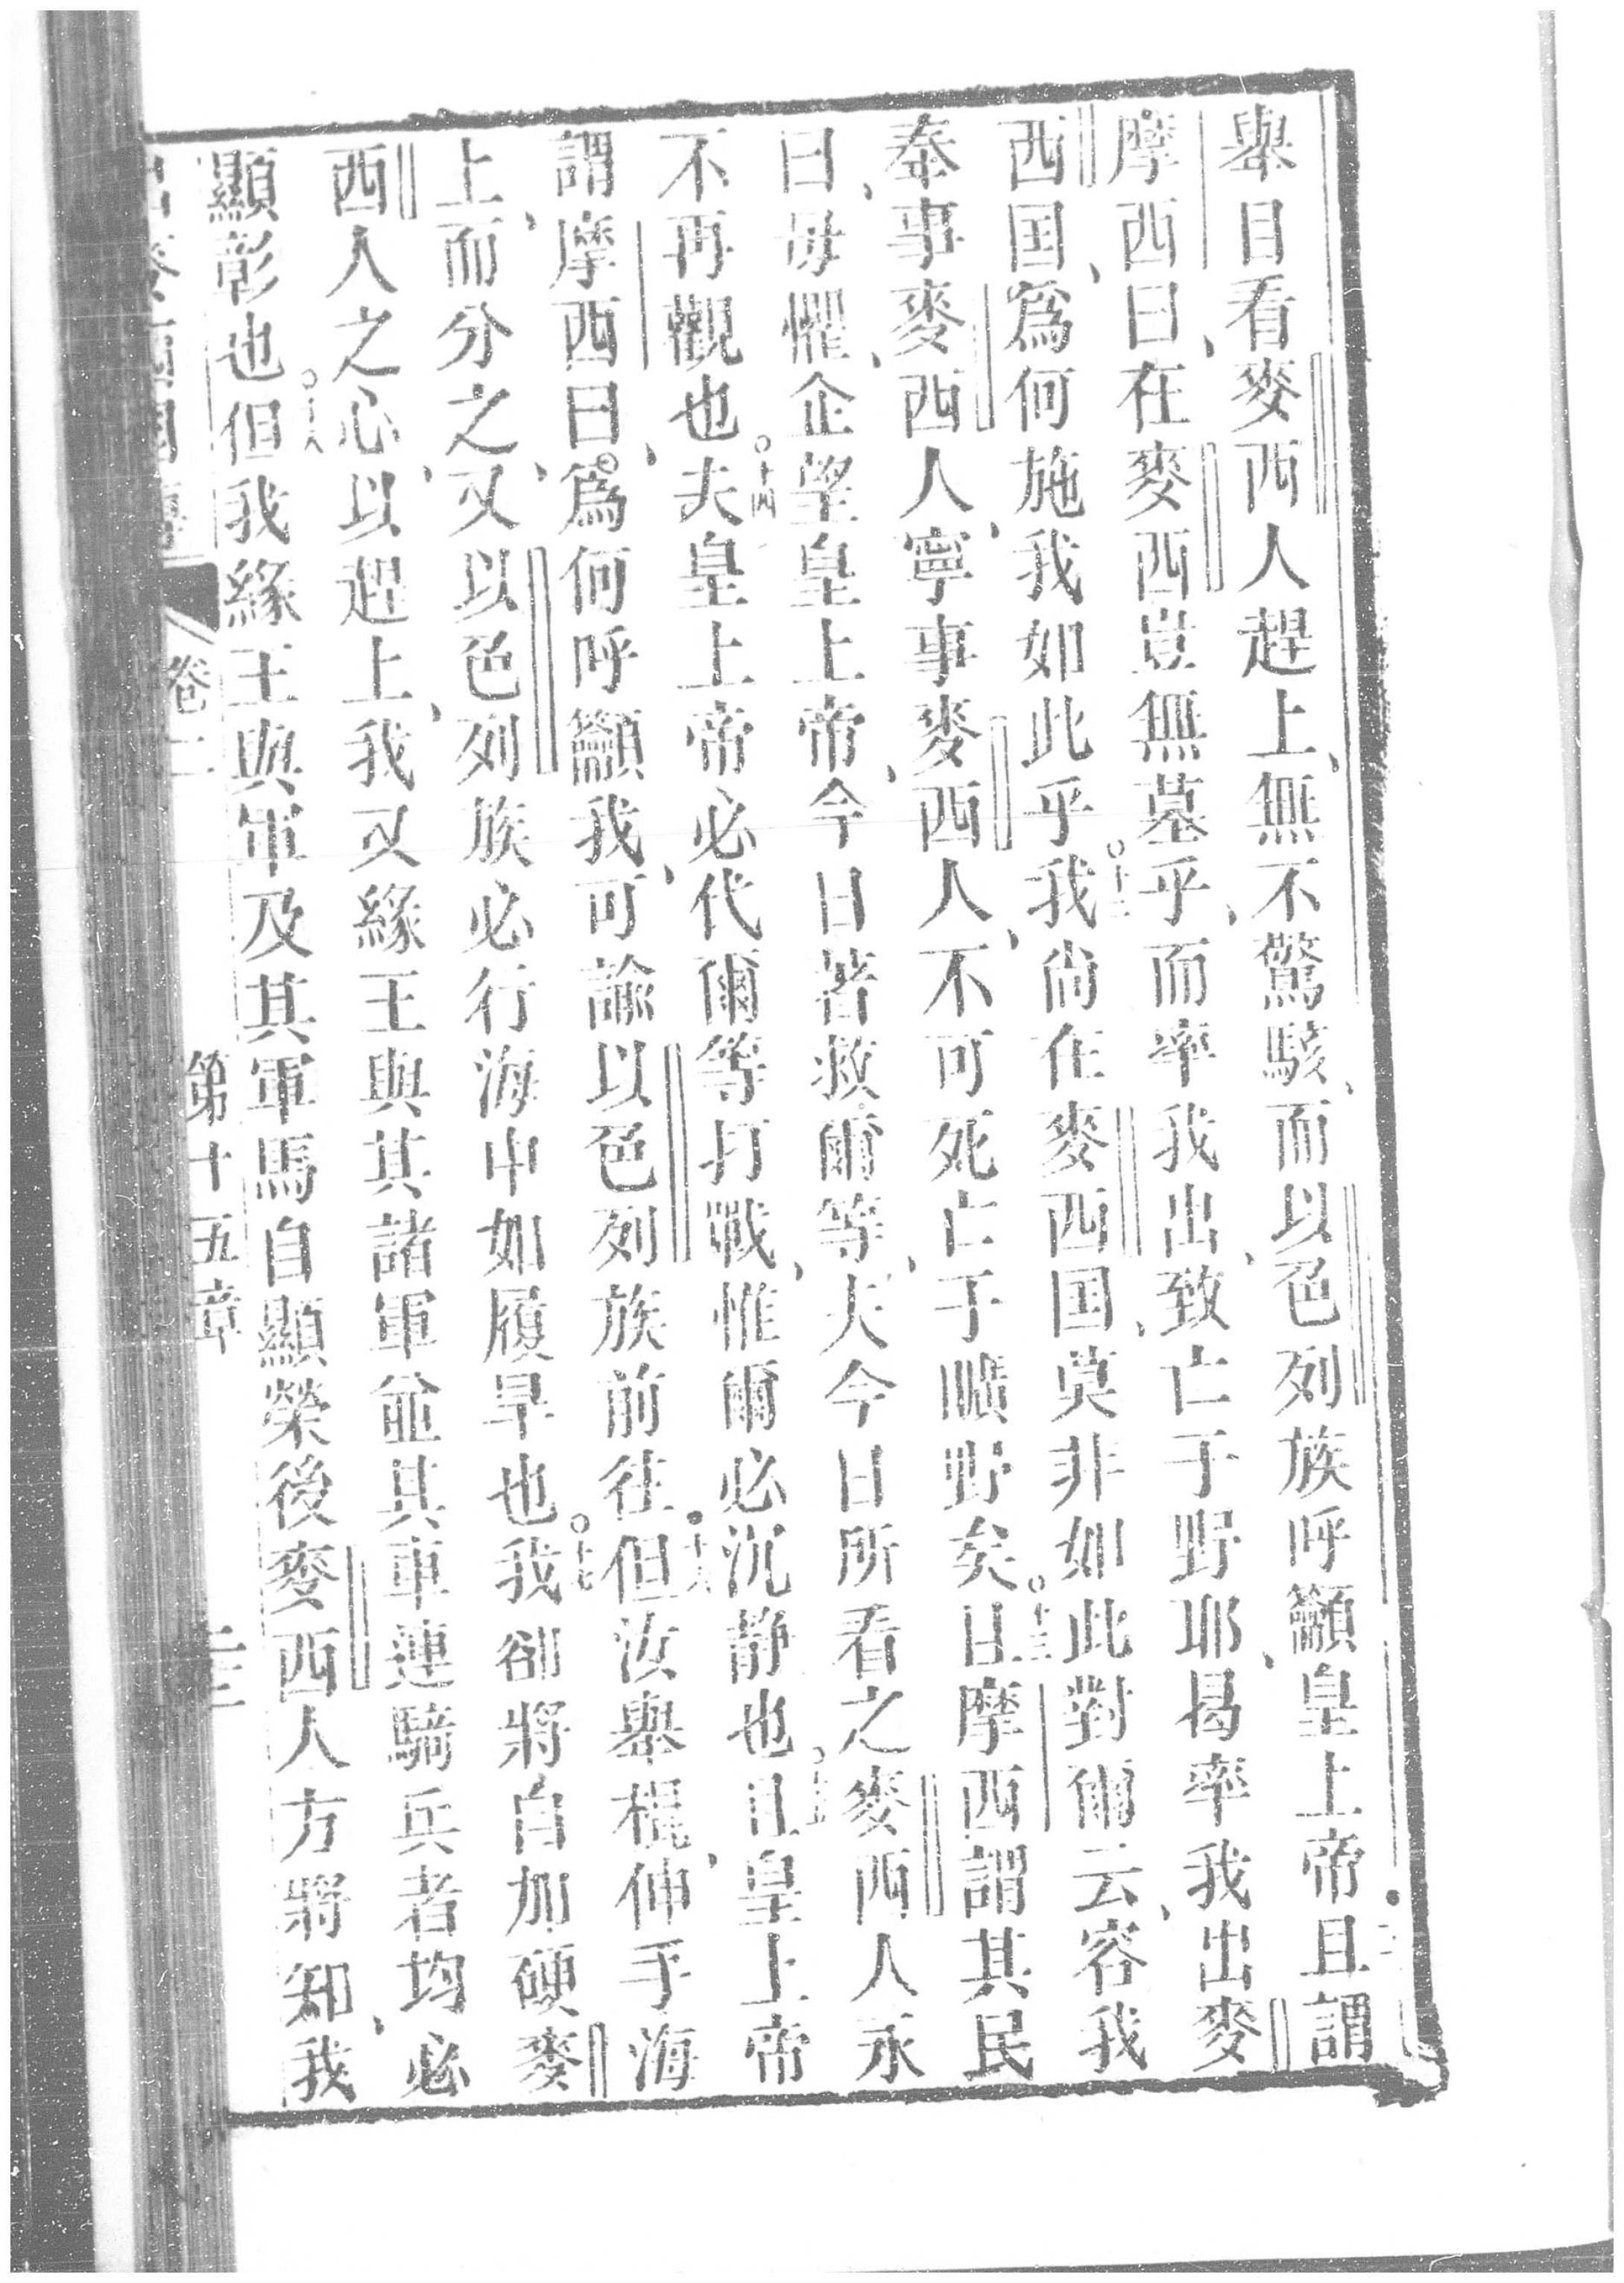 舉目看麥西人趕上、無不驚駭、而以色列族呼籲皇上帝且謂
摩西曰、在麥西豈無墓乎、而率我出、致亡于野耶、曷率我出麥
西国、為何施我如此乎○十二我尚在麥西国、莫非如此對爾云、容我
奉事麥西人、寧事麥西人、不可死亡于曠野矣○十三且摩西謂其民
曰、毋懼、企望皇上帝、今日著救爾等、夫今日所看之麥西人永
不再觀也○十四夫皇上帝必代爾等打戰、惟爾必沉静也○十五且皇上帝
謂摩西曰、為何呼籲我、可諭以色列族前往●十六但汝舉棍、伸手海
上、而分之、又以色列族必行海中如履旱也○十七我卻將自加硬麥
西人之心、以趕上、我又緣王與其諸軍並其車連騎兵者均必
顯彰也○十八但我緣王與軍及其軍馬自顯榮後麥西人方將知、我
卷二 第十五章 二三